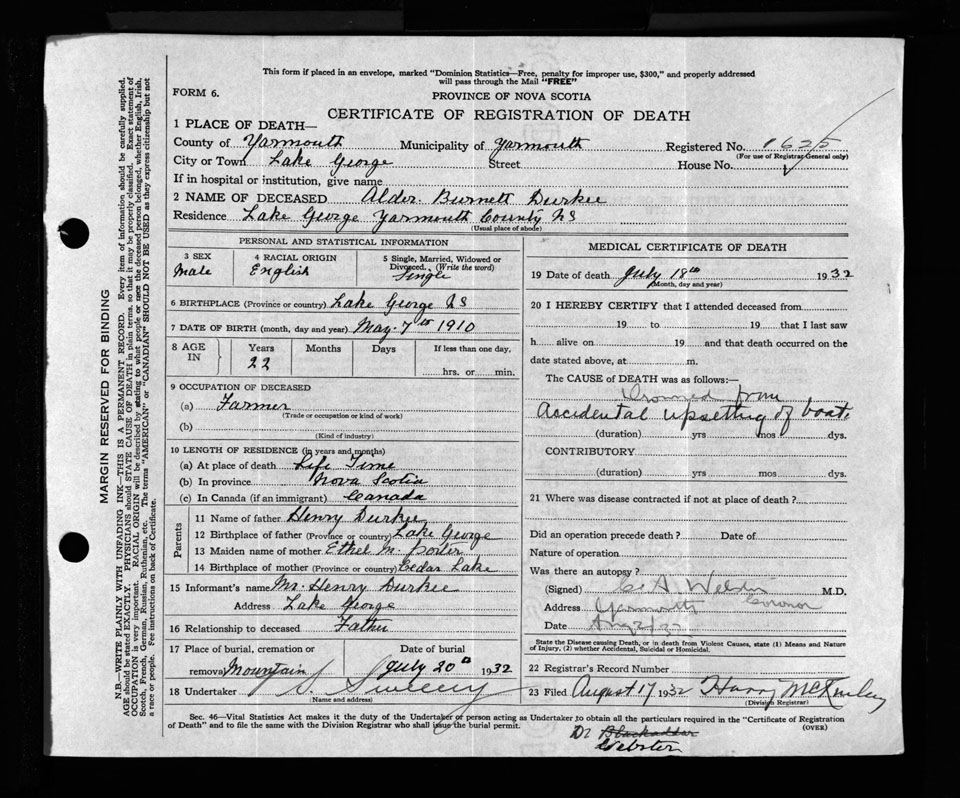 This form if placed in an envelope, marked "Dominion Statistics—Free, penalty for improper use, $300," and properly addressed
will pass through the Mail "FREE"
FORM 6.
PROVINCE OF NOVA SCOTIA
CERTIFICATE OF REGISTRATION OF DEATH
1 PLACE OF DEATH—
County of Yarmouth Municipality of Yarmouth Registered No. 1625
(For use of Registrar General only)
City or Town Lake George Street House No.
If in hospital or institution, give name
2 NAME OF DECEASED Alder Burnett Durkee
Residence Lake George Yarmouth County NS
(Usual place of abode)
PERSONAL AND STATISTICAL INFORMATION
3 SEX 4 RACIAL ORIGIN 5 Single, Married, Widowed or
Divorced. (Write the word)
Male English Single
6 BIRTHPLACE (Province or country) Lake George NS
7 DATE OF BIRTH (month, day and year) May 7th 1910
8 AGE IN Years Months Days If less than one day,
22 hrs. or min.
9 OCCUPATION OF DECEASED
(a) Farmer
(Trade or occupation or kind of work)
(b)
(Kind of industry)
10 LENGTH OF RESIDENCE (in years and months)
(a) At place of death Life Time
(b) In province Nova Scotia
(c) In Canada (if an immigrant) Canada
Parents
11 Name of father Henry Durkee
12 Birthplace of father (Province or country) Lake George
13 Maiden name of mother Ethel M. Porter
14 Birthplace of mother (Province or country) Cedar Lake
15 Informant's name Mr. Henry Durkee
Address Lake George
16 Relationship to deceased Father
17 Place of burial, cremation or removal Mountain
Date of burial July 20th 1932
18 Undertaker V. Sweeny
(Name and address)
MEDICAL CERTIFICATE OF DEATH
19 Date of death July 18th 1932
(Month, day and year)
20 I HEREBY CERTIFY that I attended deceased from
19 to 19 that I last saw
h alive on 19 and that death occurred on the
date stated above, at m.
The CAUSE of DEATH was as follows:—
Drowned from
Accidental upsetting of boat.
(duration) yrs mos dys.
CONTRIBUTORY
(duration) yrs mos dys.
21 Where was disease contracted if not at place of death?
Did an operation precede death? Date of
Nature of operation
Was there an autopsy?
(Signed) C. A. Webster M.D.
Coronor
Address Yarmouth
Date Aug 2/32
State the Disease causing Death, or in death from Violent Causes, state (1) Means and
Nature of Injury, (2) whether Accidental, Suicidal or Homicidal.
22 Registrar's Record Number
23 Filed August 17 1932 Harry McKinley
(Division Registrar)
Sec. 46—Vital Statistics Act makes it the duty of the Undertaker or person acting as Undertaker to obtain all the particulars required in the "Certificate of Registration
of Death" and to file the same with the Division Registrar who shall issue the burial permit. (OVER)
Dr Blackadder
Webster
MARGIN RESERVED FOR BINDING
N.B.—WRITE PLAINLY WITH UNFADING INK—THIS IS A PERMANENT RECORD. Every item of information should be carefully supplied.
AGE should be stated EXACTLY. PHYSICIANS should STATE CAUSE OF DEATH in plain terms, so that it may be properly classified. Exact statement of
OCCUPATION is very important. RACIAL ORIGIN will be described by stating to what people or race the deceased person belonged, whether English, Irish,
Scotch, French, German, Russian, Ruthenian, etc. The terms "AMERICAN" or "CANADIAN" SHOULD NOT BE USED as they express citizenship but not
a race or people. Fee instructions on back of Certificate.